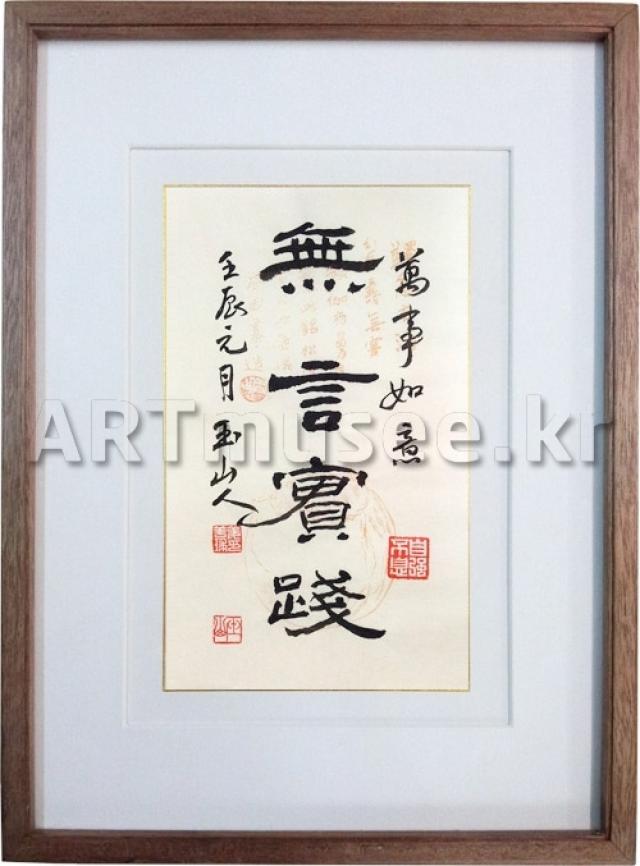 萬事如意
無言實踐
壬辰元月 玉山人
自强不息
ARTmusee.kr